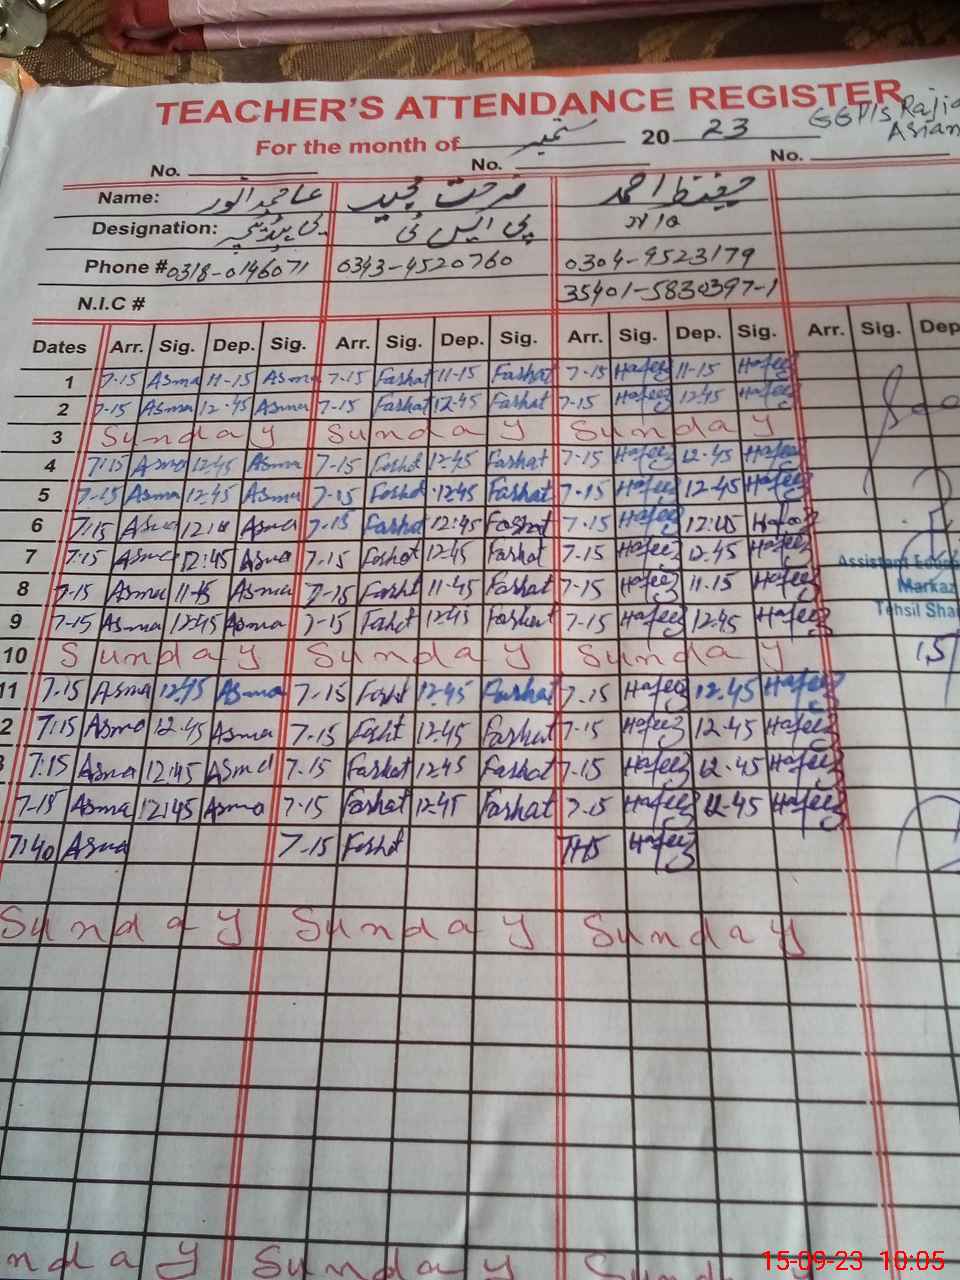 TEACHER'S ATTENDANCE REGISTER
GGP/S Rajia
Asian
For the month of ستمبر 20 23
No. No. No.
Name: فرحت مجید حفیظ احمد
Designation: پی ایس ٹی
Phone # 0318-0146071 0343-4520760 0304-9523179
N.I.C # 35401-5830397-1
Dates Arr. Sig. Dep. Sig. Arr. Sig. Dep. Sig. Arr. Sig. Dep. Sig. Arr. Sig. Dep
1 7-15 Asma 11-15 Asma 7-15 Farhat 11-15 Farhat 7-15 Hafeez 11-15 Hafeez
2 7-15 Asma 12-45 Asma 7-15 Farhat 12-45 Farhat 7-15 Hafeez 12-45 Hafeez
3 Sunday Sunday Sunday
4 7:15 Asma 12:45 Asma 7-15 Farhat 12-45 Farhat 7-15 Hafeez 12-45 Hafeez
5 7-15 Asma 12:45 Asma 7-15 Farhat 12:45 Farhat 7-15 Hafeez 12-45 Hafeez
6 7:15 Asma Asma 7-15 Farhat 12:45 Farhat 7-15 Hafeez Hafeez
7 7:15 Asma 12:45 Asma 7-15 Farhat 12-45 Farhat 7-15 Hafeez 12-45 Hafeez
Assistant
8 7-15 Asma Asma 7-15 Farhat 11-45 Farhat 7-15 Hafeez 11-15 Hafeez
Markaz
9 7-15 Asma 12:45 Asma 7-15 Farhat 12:45 Farhat 7-15 Hafeez 12-45 Hafeez
Tehsil Sha
10 Sunday Sunday Sunday 15
11 7-15 Asma 12:45 Asma 7-15 Farhat 12-45 Farhat 7-15 Hafeez 12-45 Hafeez
2 7:15 Asma 12-45 Asma 7-15 Farhat 12-45 Farhat 7-15 Hafeez 12-45 Hafeez
7:15 Asma 12:45 Asma 7-15 Farhat 12:45 Farhat 7-15 Hafeez 12-45 Hafeez
7-15 Asma 12:45 Asma 7-15 Farhat 12-45 Farhat 7-15 Hafeez 12-45 Hafeez
7:40 Asma 7-15 Farhat 7-15 Hafeez
Sunday Sunday Sunday
nday Sunday Sunday
15-09-23 10:05